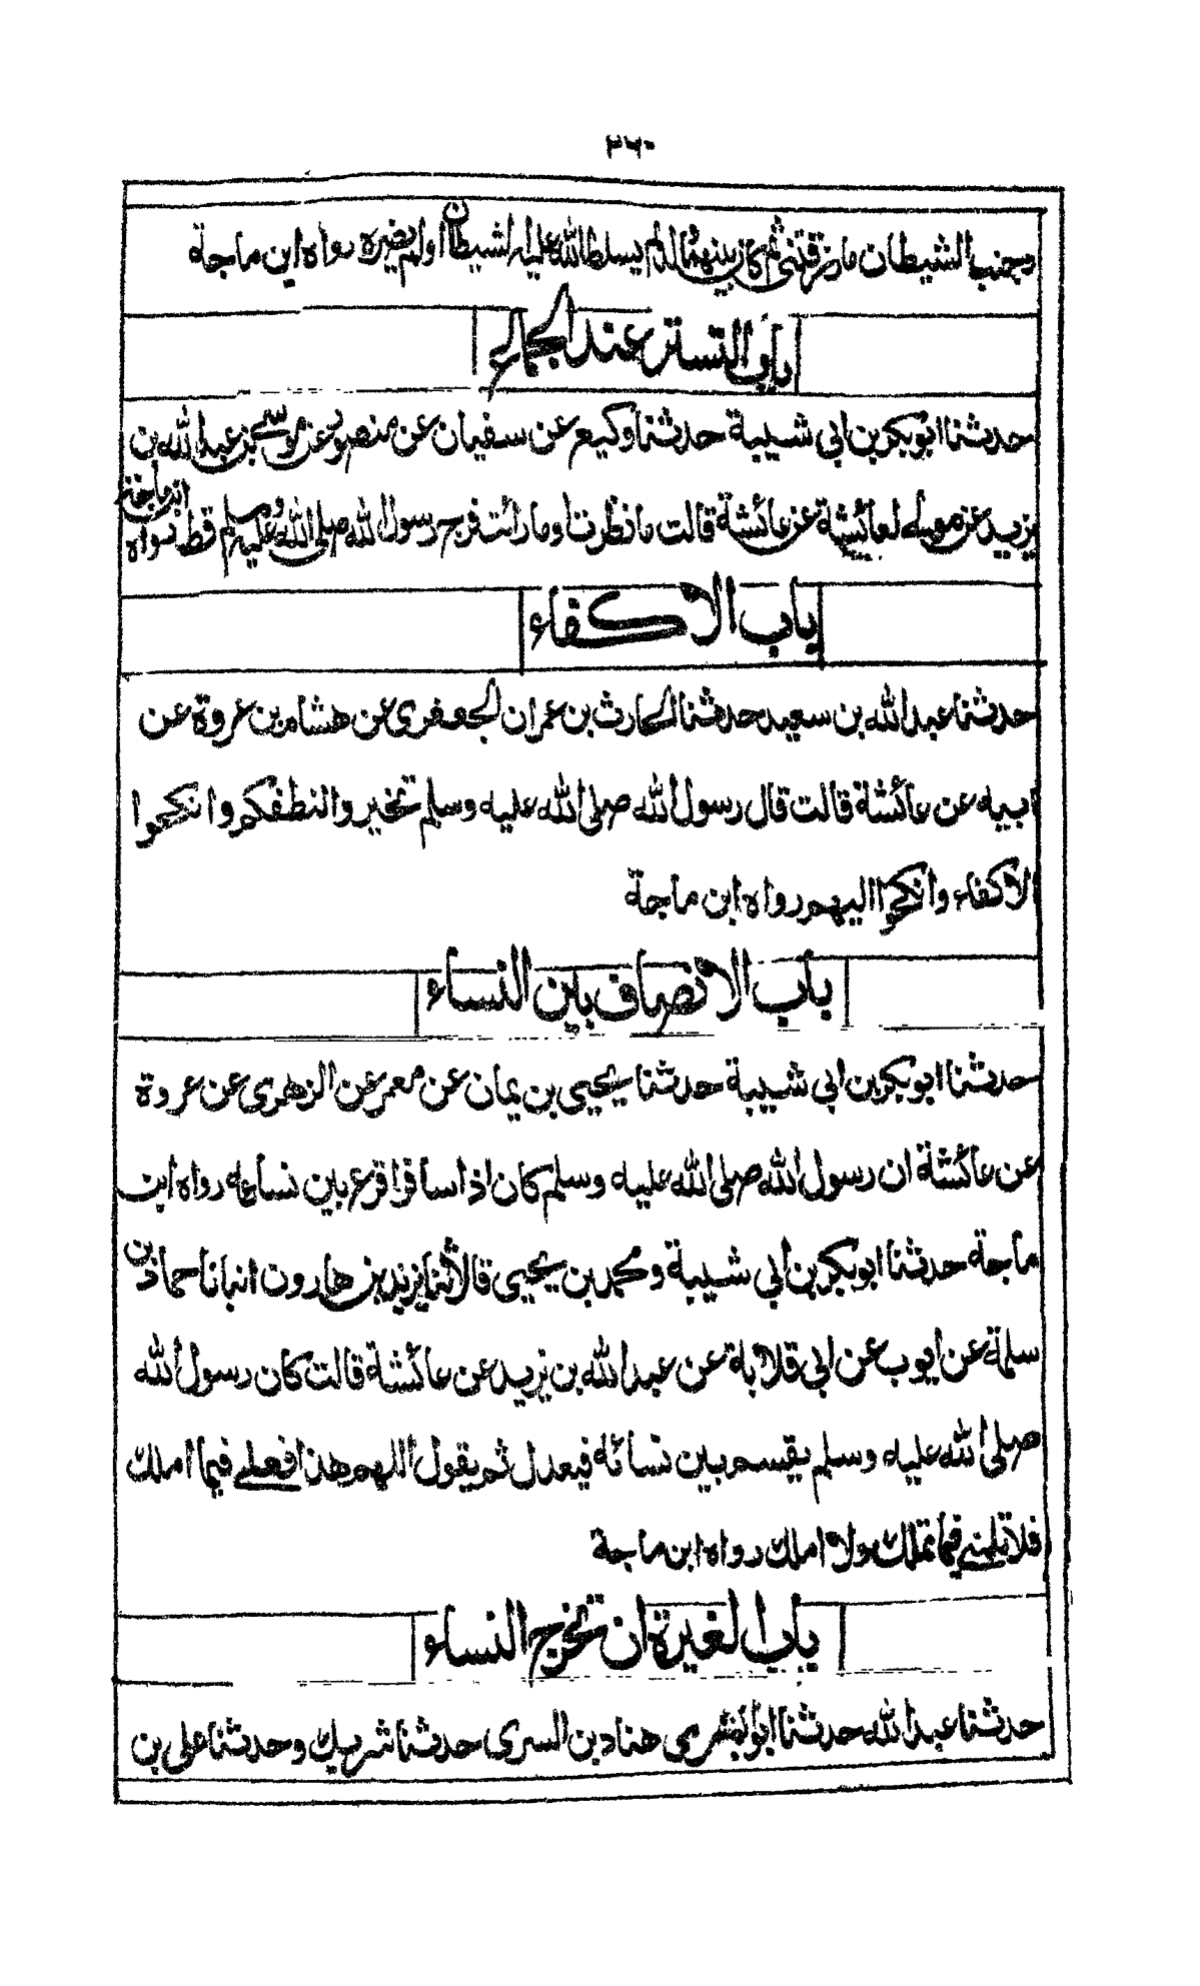 ٢٦٠
وجنب الشيطان ما رزقتنى ثم كان بينهما ولد لم يسلط الله عليه الشيطان اولم يضره رواه ابن ماجة
باب التستر عند الجماع
حدثنا ابوبكر بن ابى شيبة حدثنا وكيع عن سفيان عن منصور عن موسى بن عبد الله بن
يزيد عن مولى لعائشة عن عائشة قالت ما نظرت او ما رائت فرج رسول الله صلى الله عليه وسلم قط رواه ابن ماجة
باب الاكفاء
حدثنا عبد الله بن سعيد حدثنا الحارث بن عمران الجعفرى عن هشام بن عروة عن
ابيه عن عائشة قالت قال رسول الله صلى الله عليه وسلم تخيروا لنطفكم وانكحوا
الاكفاء وانكحوا اليهم رواه ابن ماجة
باب الانصاف بين النساء
حدثنا ابوبكر بن ابى شيبة حدثنا يحيى بن يمان عن معمر عن الزهرى عن عروة
عن عائشة ان رسول الله صلى الله عليه وسلم كان اذا سافر اقرع بين نسائه رواه ابن
ماجة حدثنا ابوبكر بن ابى شيبة ومحمد بن يحيى قالا ثنا يزيد بن هارون انبانا حماد بن
سلمة عن ايوب عن ابى قلابة عن عبد الله بن يزيد عن عائشة قالت كان رسول الله
صلى الله عليه وسلم يقسم بين نسائه فيعدل ثم يقول اللهم هذا فعلى فيما املك
فلا تلمنى فيما تملك ولا املك رواه ابن ماجة
باب الغيرة ان تخرج النساء
حدثنا عبد الله حدثنا هناد بن السرى حدثنا شريك وحدثنا على بن